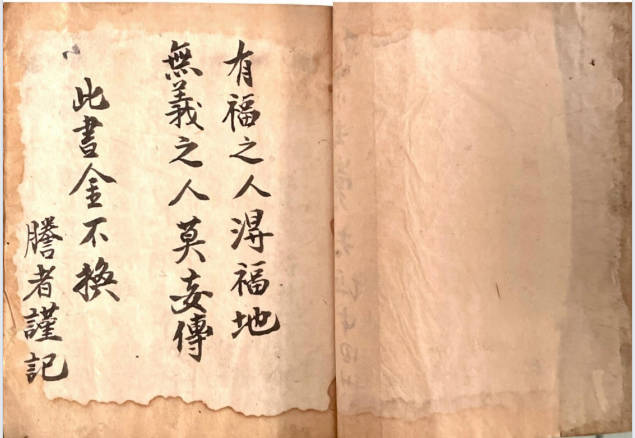 有福之人淂福地
無義之人莫妄傳
此書金不換
謄者謹記